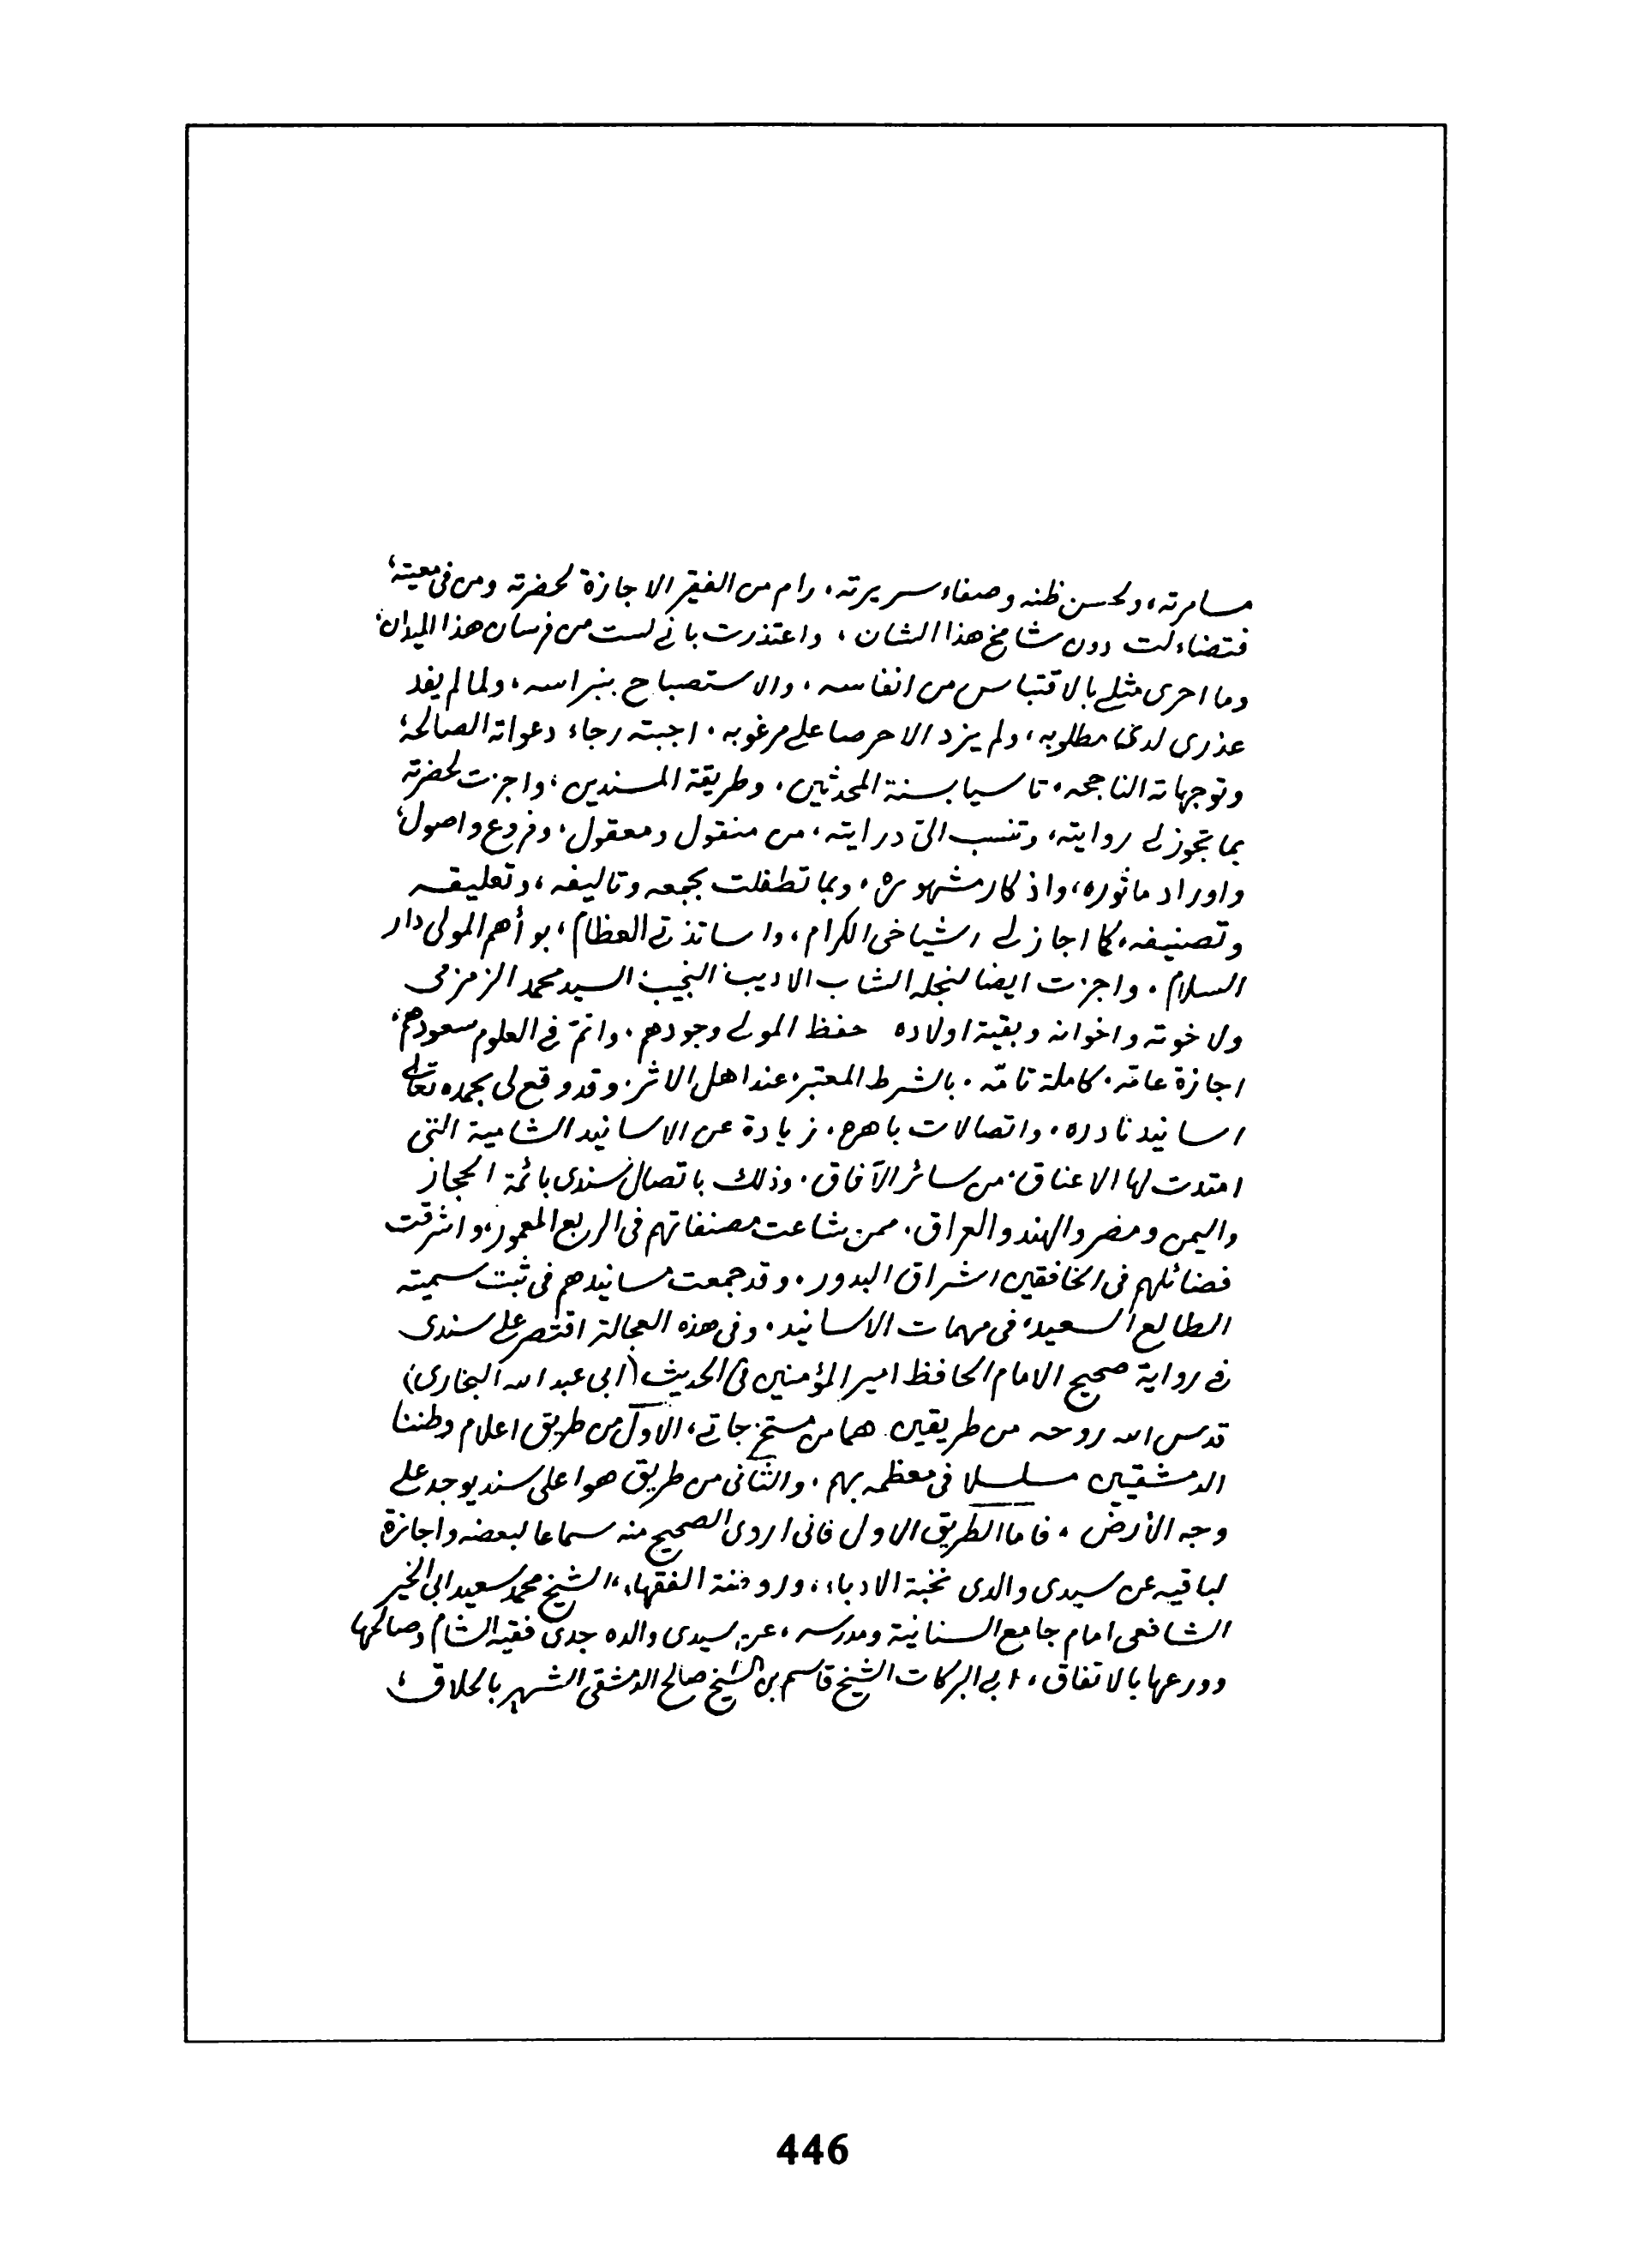 مسامرته، ولحسن ظنه وصفاء سريرته، رام من الفقير الاجازة لحضرته ومن فى معيته،
فتضاءلت دون شامخ هذا الشان، واعتذرت بانى لست من فرسان هذا الميدان،
وما احرى مثلى بالاقتباس من انفاسه، والاستصباح بنبراسه، ولما لم يفد
عذرى لدى مطلوبه، ولم يزد الا حرصا على مرغوبه، اجبته رجاء دعواته الصالحة،
وتوجهاته الناجحه، تاسيا بسنة المحدثين، وطريقة المسندين، واجزت لحضرته
بما تجوز لى روايته، وتنسب الىّ درايته، من منقول ومعقول، وفروع واصول،
واوراد ماثوره، واذكار مشهوره، وبما تطفلت بجمعه وتاليفه، وتعليقه
وتصنيفه، كما اجاز لى اشياخى الكرام، واساتذتى العظام، بوأهم المولى دار
السلام، واجزت ايضا لنجله الشاب الاديب النجيب السيد محمد الزمزمى
ولاخوته واخوانه وبقية اولاده حفظ المولى وجودهم، واتمّ فى العلوم سعودهم،
اجازة عامّة، كاملة تامّه، بالشرط المعتبر، عند اهل الاثر، وقد وقع لى بحمده تعالى
اسانيد نادره، واتصالات باهره، زيادة عن الاسانيد الشامية التى
امتدت لها الاعناق، من سائر الآفاق، وذلك باتصال سندى بائمة الحجاز
واليمن ومضر والهند والعراق، ممن شاعت مصنفاتهم فى الربع المعمور، واشرقت
فضائلهم فى الخافقين اشراق البدور، وقد جمعت مسانيدهم فى ثبت سميته
الطالع السعيد، فى مهمات الاسانيد، وفى هذه العجالة اقتصر على سندى
فى رواية صحيح الامام الحافظ امير المؤمنين فى الحديث (ابى عبد الله البخارى)
قدس الله روحه من طريقين هما من مستخرجاتى، الاول من طريق اعلام وطننا
الدمشقيين مسلسلا فى معظمه بهم، والثانى من طريق هو اعلى سند يوجد على
وجه الأرض، فاما الطريق الاول فانى اروى الصحيح منه سماعا لبعضه واجازة
لباقيه عن سيدى والدى نخبة الادباء، وروضة الفقهاء، الشيخ محمد سعيد ابى الخير
الشافعى امام جامع السنانية ومدرسه، عن سيدى والده جدى فقيه الشام وصالحها
وورعها بالاتفاق، ابى البركات الشيخ قاسم بن الشيخ صالح الدمشقى الشهير بالحلاق،
446